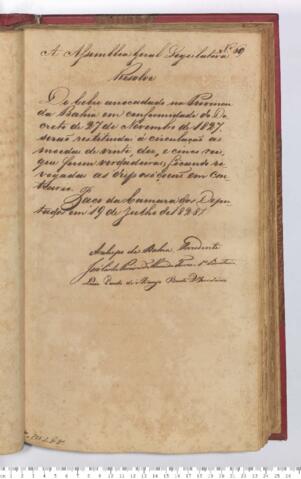 Nº 59
A Assemblea Geral Legislativa
Resolve
Do Cobre arrecadado na Provin-
cia da Bahia em conformidade do De-
creto de 27 de Novembro de 1827,
serão restituidas á circulação as
moedas de vinte, dez, e cinco reis,
que forem verdadeiras, ficando re-
vogadas as disposições em con-
trario.
Paço da Camara dos Depu-
tados em 19 de Julho de 1828
Arcebispo da Bahia Presidente
José Carlos Pereira de Almeida Torres 1º Secretario